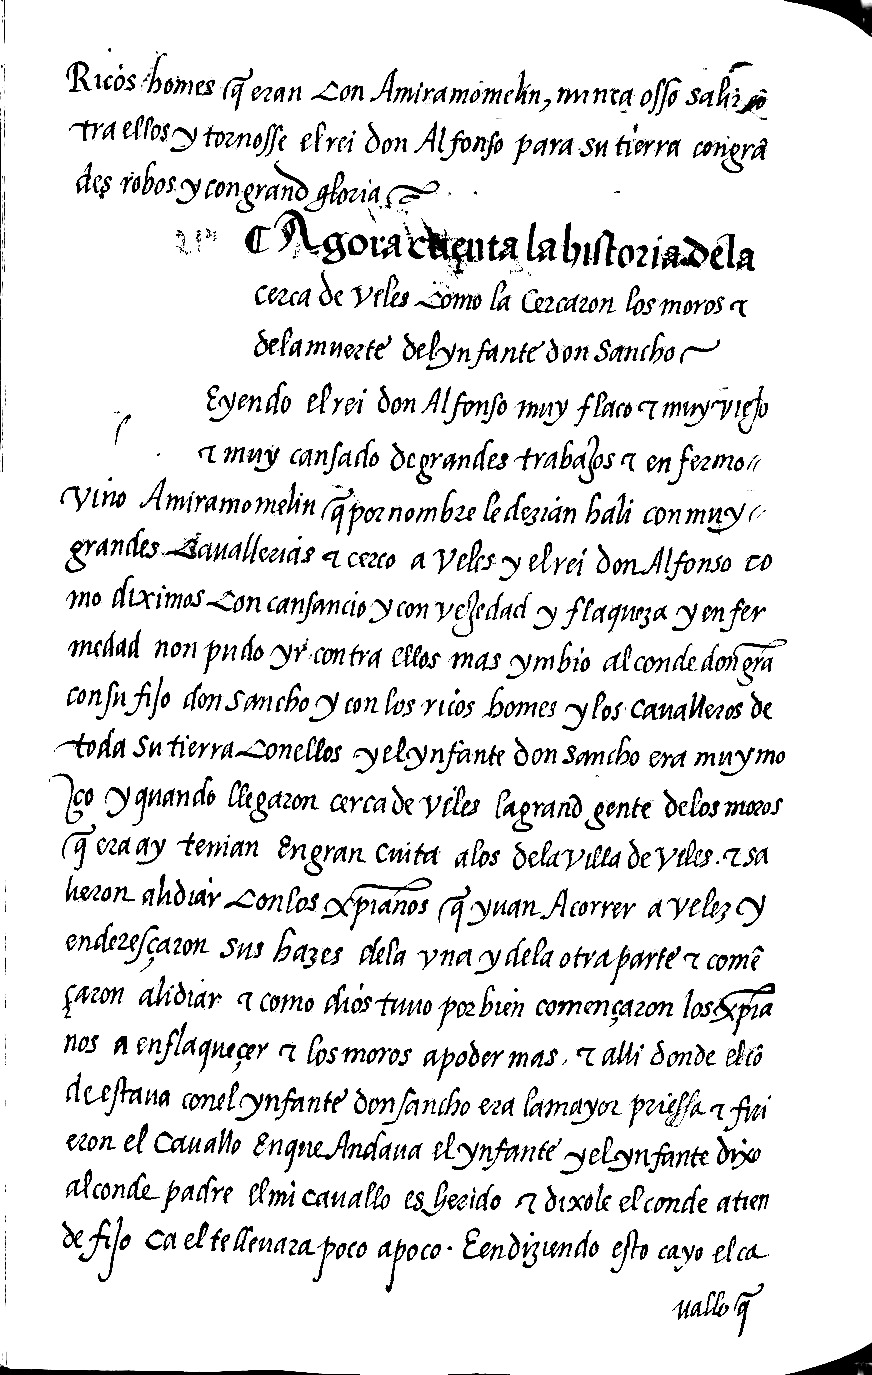 Ricos homes q̃ eran con Amiramomelin, nunca osso salir cõ
tra ellos y tornosse el rei don Alfonso para su tierra con grã
des robos y con grand gloria
Agora cuenta la historia de la
cerca de Veles como la cercaron los moros τ
de la muerte del ynfante don Sancho
Eyendo el rei don Alfonso muy flaco τ muy viejo
τ muy cansado de grandes trabajos τ enfermo
vino Amiramomelin q̃ por nombre le dezian hali con muy
grandes Cavallerias τ cerco a Veles y el rei don Alfonso co
mo diximos con cansancio y con vejedad y flaqueza y enfer
medad non pudo yr contra ellos mas ymbio al conde don grã
con su fijo don Sancho y con los ricos homes y los cavalleros de
toda su tierra con ellos y el ynfante don Sancho era muy mo
ço y quando llegaron cerca de Veles la grand gente de los moros
q̃ era ay tenian En gran cuita a los de la villa de Veles. τ sa
lieron a lidiar con los xp̃ianos q̃ yuan Acorrer a Velez y
enderesçaron sus hazes de la vna y de la otra parte τ comẽ
çaron a lidiar τ como dios tuuo por bien començaron los xp̃ia
nos a enflaqueçer τ los moros a poder mas, τ alli donde el cõ
de estaua con el ynfante don sancho era la mayor priessa τ firi
eron el Cauallo En que Andaua el ynfante y el ynfante dixo
al conde padre el mi cauallo es herido τ dixole el conde atien
de fijo ca el te lleuara poco a poco. E en diziendo esto cayo el ca
uallo q̃